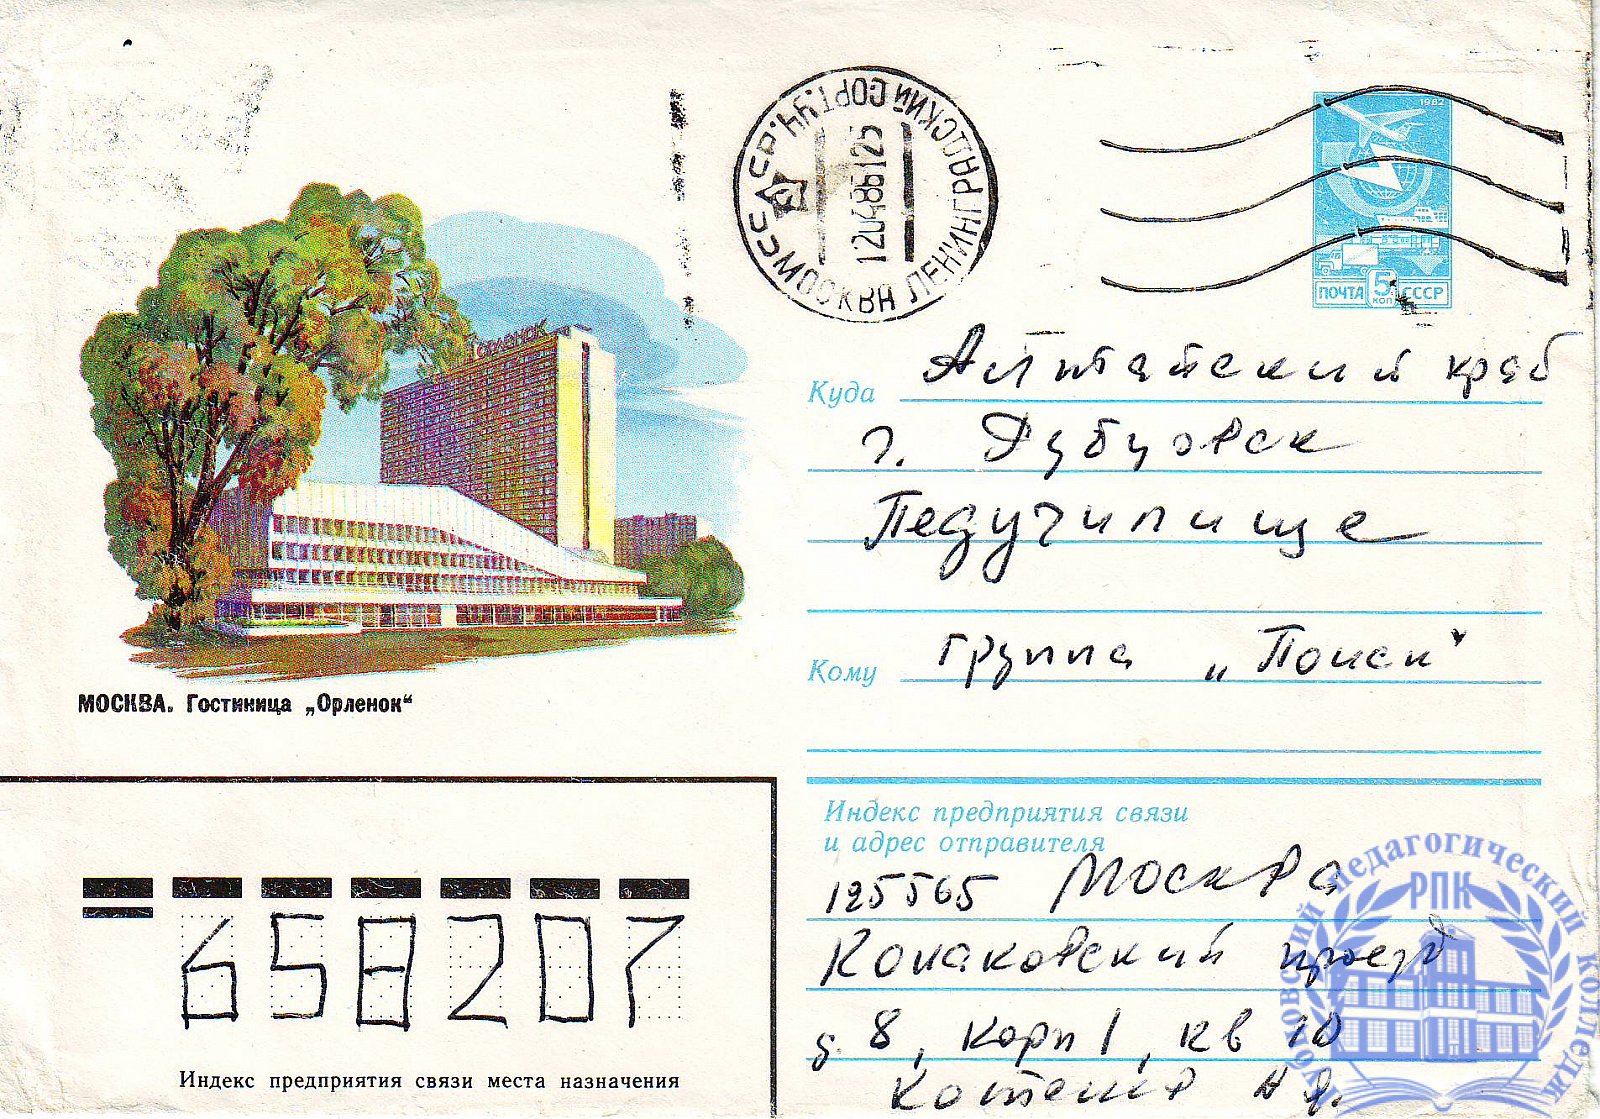 СССР МОСКВА ЛЕНИНГРАДСКИЙ СОРТ.УЧ.
12 04 86 12
1982
ПОЧТА 5 КОП СССР
ОРЛЕНОК
МОСКВА. Гостиница „Орленок“
Куда Алтайский край
г. Рубцовск
Педучилище
Кому группа „Поиск“
Индекс предприятия связи
и адрес отправителя
125565 Москва
Конаковский проезд
д. 8, корп 1, кв 10
658207
Индекс предприятия связи места назначения
Рубцовский педагогический колледж
РПК
РПК